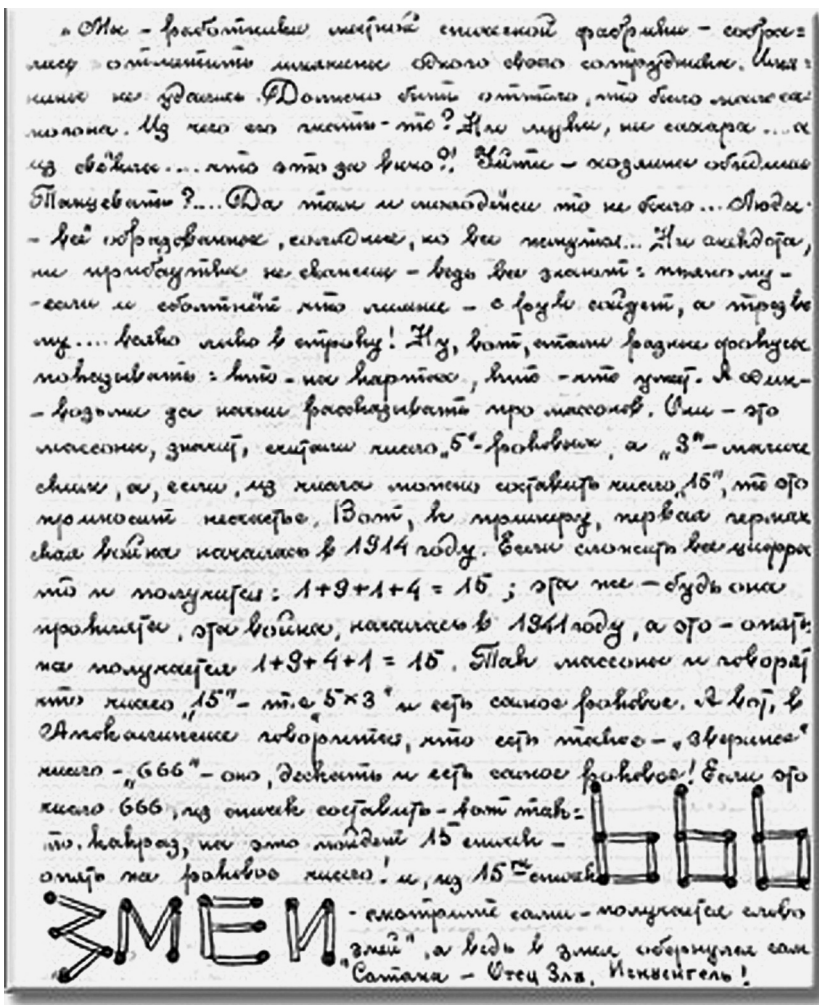 „Мы – работники местной спичечной фабрики – собра=
лись отметить именины одного своего сотрудника. Имя=
нины не удались. Должно быть оттого, что было мало са=
могона. Из чего его гнать-то? Ни муки, ни сахара ... а
из свёклы .... что это за вино?! Уйти – хозяина обидишь
Танцевать?.... Да там и молодёжи то не было... Люди-
- всё образованные, солидные, но все жмутся... Ни анекдота,
ни прибаутки не скажешь – ведь все знают: пьяному-
-если и сболтнёт что лишне – с рук сойдет, а трезво
му .... всяко лыко в строку! Ну, вот, стали разные фокусы
показывать: кто - на картах, кто - что умеет. А один-
- возьми да начни рассказывать про массонов. Они – это
массоны, значит, считали число „5"-роковым, а „3"-магиче
ским, а, если, из числа можно составить число „15", то это
приносит несчастье. Вот, к примеру, первая герман
ская война началась в 1914 году. Если сложить все цифры
то и получится: 1+9+1+4 = 15 ; эта же – будь она
проклята, эта война, началась в 1941 году, а это – опять
на получается 1+9+4+1 = 15. Так массоны и говорят
что число „15"- т.е „5×3" и есть самое роковое. А вот, в
Апокалипсисе говорится, что есть такое – „Звериное"
число - „666" - оно, дескать и есть самое роковое! Если это
число 666, из спичек составить – вот так:
то, какраз, на это пойдет 15 спичек –
опять на роковое число! и, из 15ти спичек
666
ЗМЕИ
- смотрите сами – получается слово
„змей", а ведь в змея обернулся сам
Сатана – Отец Зла, Искуситель!